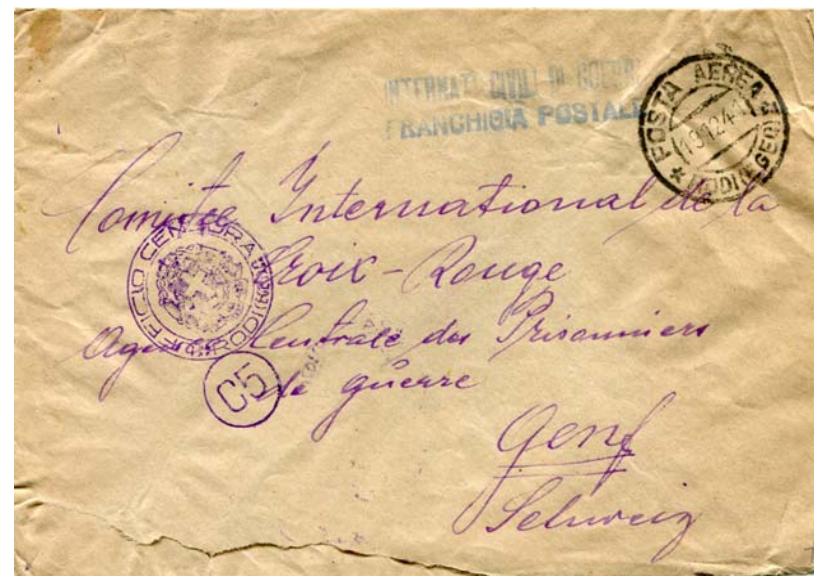 INTERNATI CIVILI DI GUERRA
FRANCHIGIA POSTALE
POSTA AEREA
19.12.41
RODI (EGEO)
Comitée International de la
Croix-Rouge
Agence Centrale des Prisonniers
de guerre
Genf
Schweiz
UFFICIO CENSURA
RODI
C5